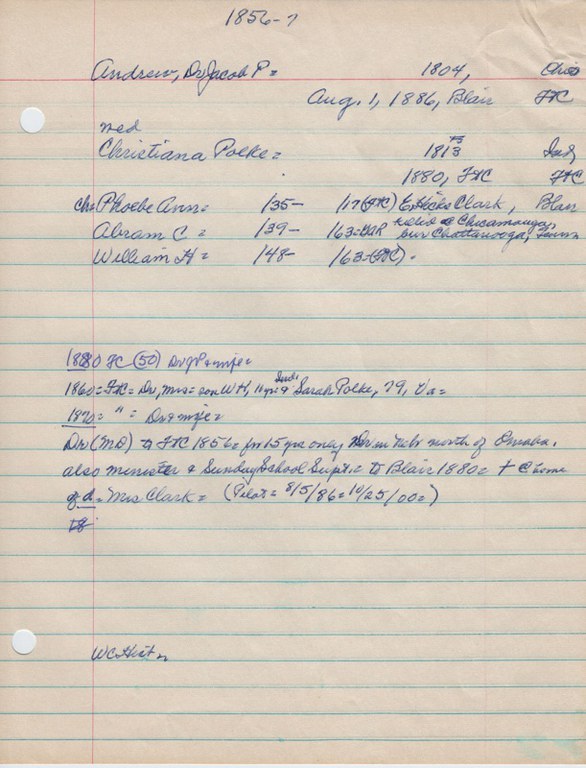 1856-7
Andrew, Dr Jacob P= 1804, Ohio
Aug. 1, 1886, Blair FtC
med
Christiana Polke= 1813 Ind,
1880, FtC FtC
ch= Phoebe Ann= /35- /17(FtC) E. Hicks Clark, Blair
Abram C= /39- /63=GAR killed @ Chicamauga,
bur Chattanooga, Tenn
William H= /48- /63=(FtC)-
1880 FC (50) Dr JP & wife=
1860=FtC= Dr, Mrs= son WH, 11 yrs & Sarah Polke, 79, Va=
1870= " = Dr & wife=
Dr (MD) to FTC 1856= for 15 yrs only Dr in Nebr north of Omaha.
also minister & Sunday School Supt.= to Blair 1880= † @ home
of d= Mrs Clark= (Pilot= 8/5/86=10/25/00=)
WCHist=